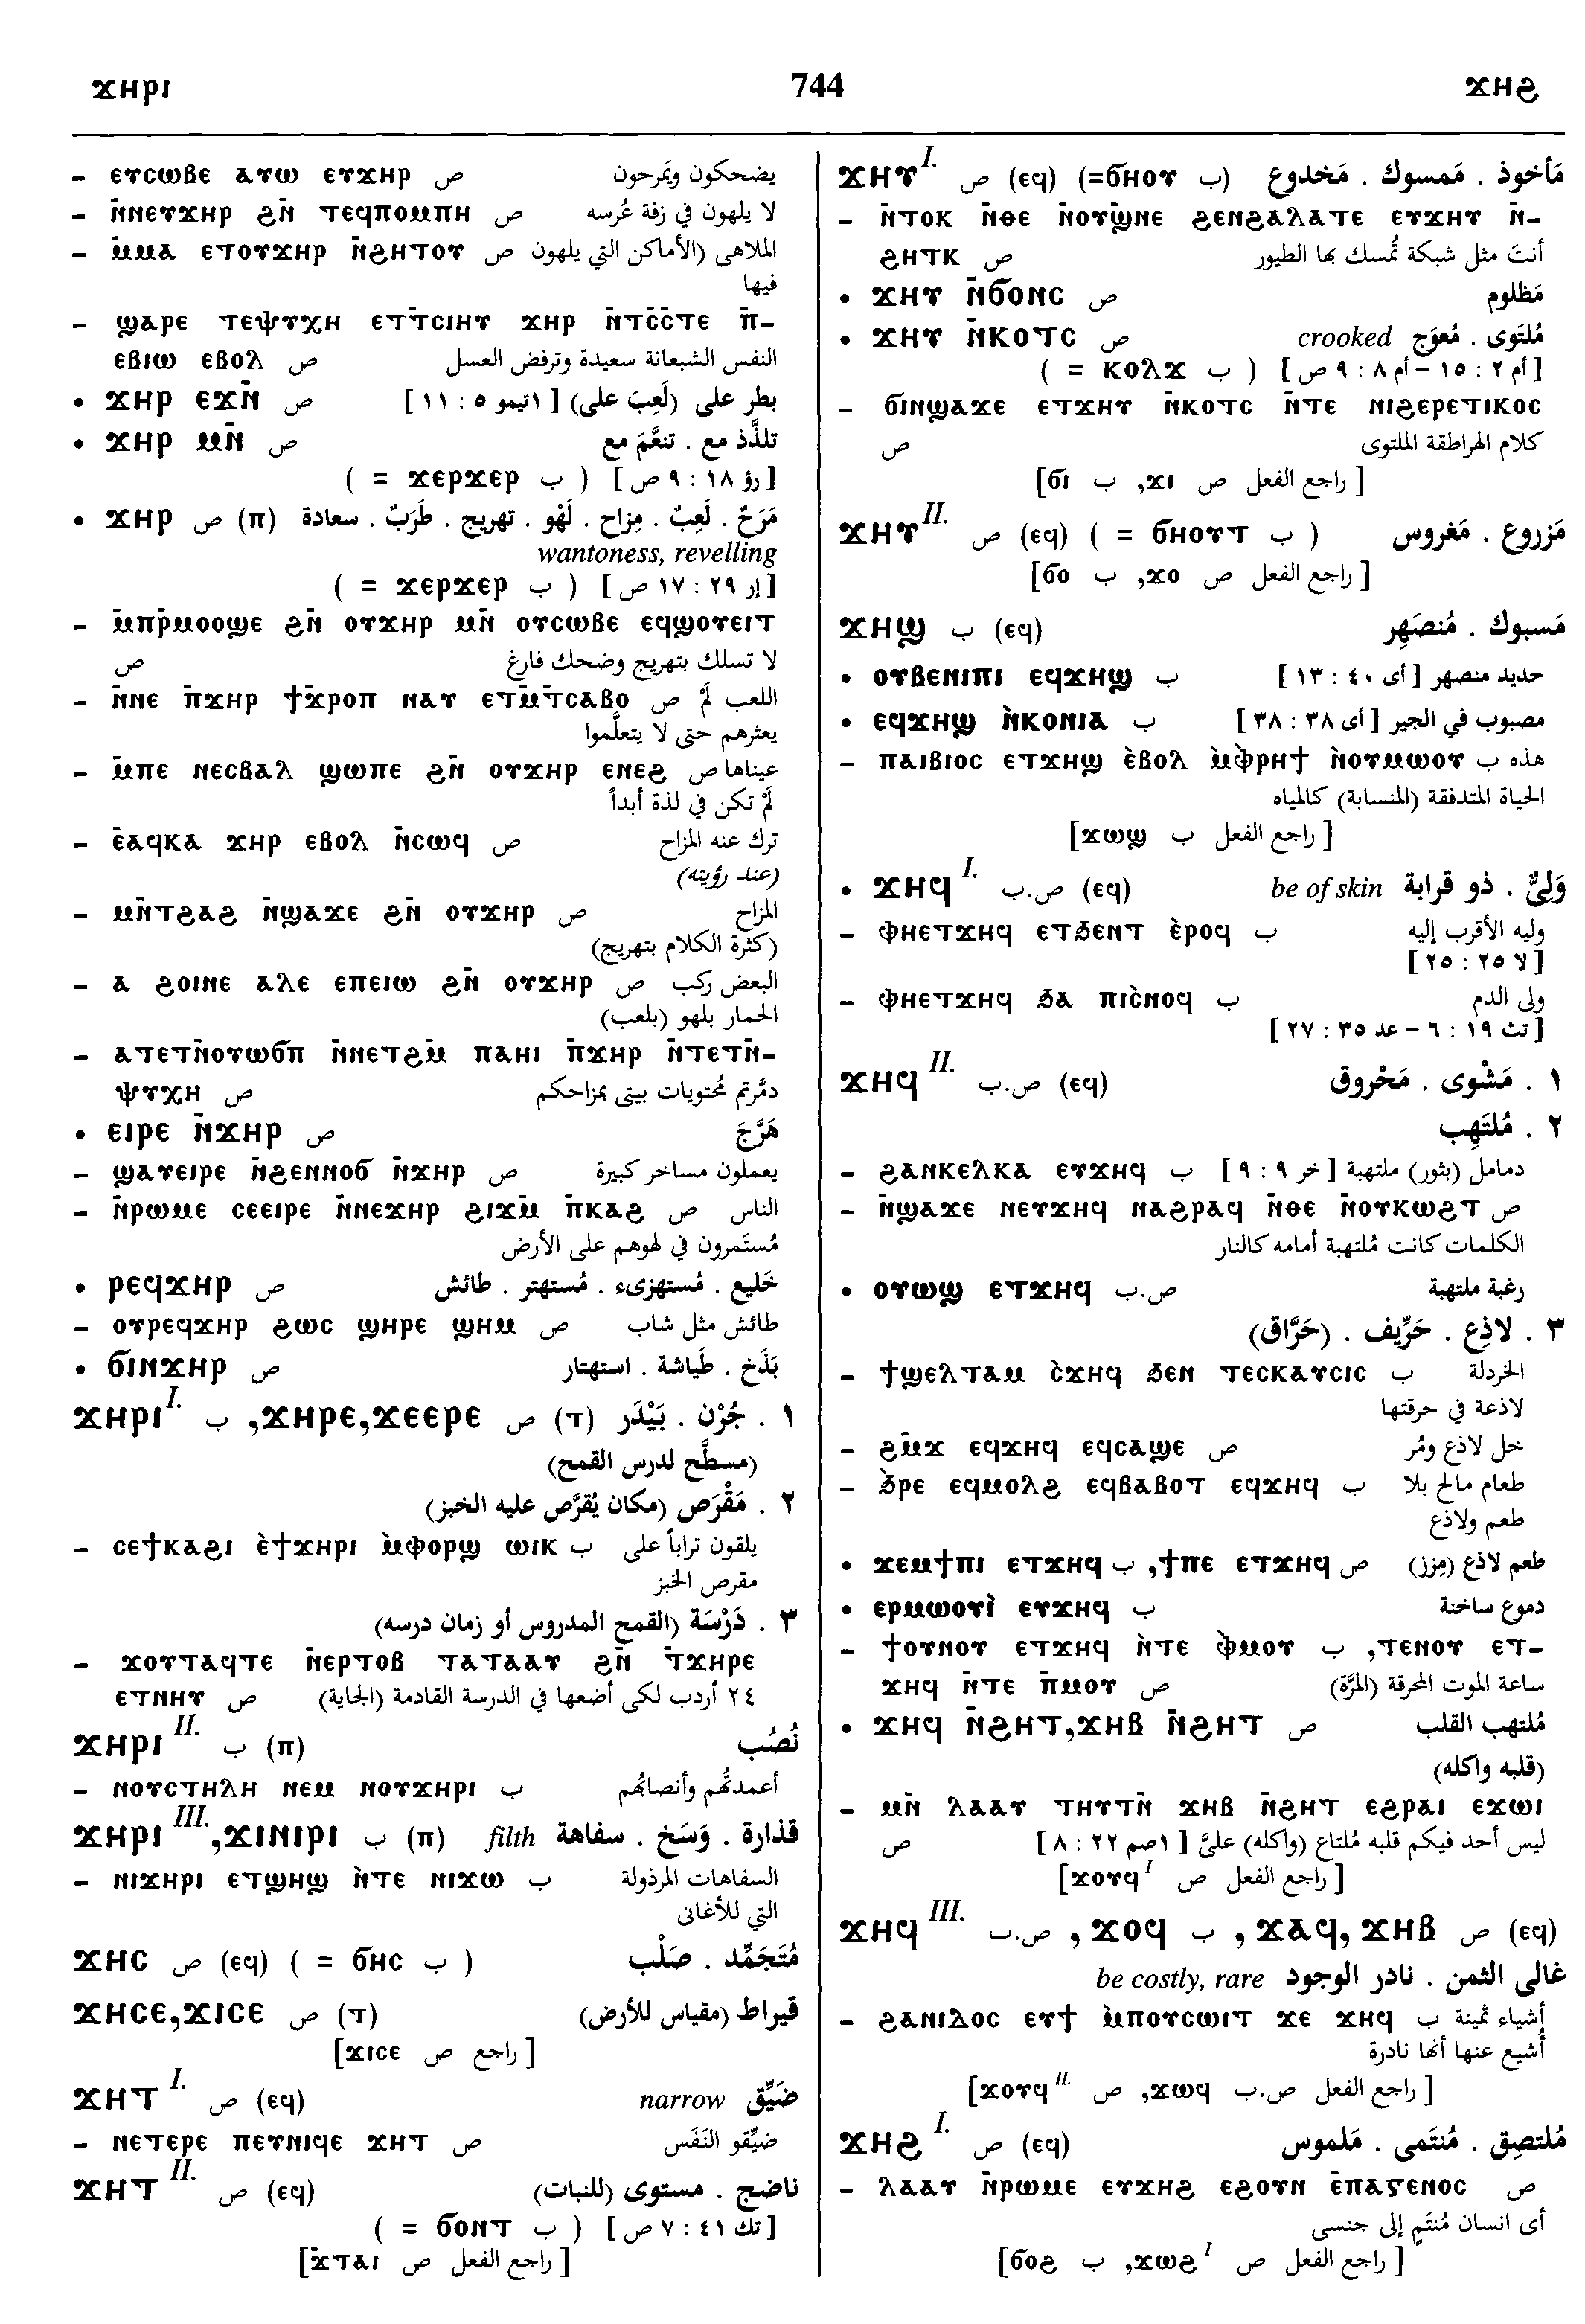 ϫⲏⲣⲓ 744 ϫⲏϩ
– ⲉⲩⲥⲱⲃⲉ ⲁⲩⲱ ⲉⲩϫⲏⲣ ص يضحكون ويَمرحون
– ⲛ̄ⲛⲉⲩϫⲏⲣ ϩⲛ̄ ⲧⲉϥⲡⲟⲙⲡⲏ ص لا يلهون في زفة عُرسه
– ⲙ̄ⲙⲁ ⲉⲧⲟⲩϫⲏⲣ ⲛ̄ϩⲏⲧⲟⲩ ص الملاهى (الأماكن التي يلهون
فيها
– ϣⲁⲣⲉ ⲧⲉⲯⲩⲭⲏ ⲉⲧⲧⲥⲓⲏⲩ ϫⲏⲣ ⲛ̄ⲧⲥ̄ⲥ̄ⲧⲉ ⲡ̄-
ⲉⲃⲓⲱ ⲉⲃⲟⲗ ص النفس الشبعانة سعيدة وترفض العسل
• ϫⲏⲣ ⲉϫⲛ̄ ص بطر على (لَعِبَ على) [ ١تيمو ٥ : ١١ ]
• ϫⲏⲣ ⲙⲛ̄ ص تلذَّذ مع . تنعَّمَ مع
[رؤ ١٨ : ٩ ص] ( ب ϫⲉⲣϫⲉⲣ = )
• ϫⲏⲣ (ⲡ) ص مَرَحٌ . لَعِبٌ . مِزاح . لَهْو . تهريج . طَرَبٌ . سعادة
wantoness, revelling
[إر ٢٩ : ١٧ ص] ( ب ϫⲉⲣϫⲉⲣ = )
– ⲙ̄ⲡⲣ̄ⲙⲟⲟϣⲉ ϩⲛ̄ ⲟⲩϫⲏⲣ ⲙⲛ̄ ⲟⲩⲥⲱⲃⲉ ⲉϥϣⲟⲩⲉⲓⲧ
ص لا تسلك بتهريج وضحك فارغ
– ⲛ̄ⲛⲉ ⲡ̄ϫⲏⲣ ϯϫⲣⲟⲡ ⲛⲁⲩ ⲉⲧⲙ̄ⲧⲥⲁⲃⲟ ص اللعب لَمْ
يعثرهم حتى لا يتعلَّموا
– ⲙ̄ⲡⲉ ⲛⲉⲥⲃⲁⲗ ϣⲱⲡⲉ ϩⲛ̄ ⲟⲩϫⲏⲣ ⲉⲛⲉϩ ص عيناها
لَمْ تكن في لذة أبداً
– ⲉ̄ⲁϥⲕⲁ ϫⲏⲣ ⲉⲃⲟⲗ ⲛ̄ⲥⲱϥ ص ترك عنه المزاح
(عند رؤيته)
– ⲙⲛ̄ⲧϩⲁϩ ⲛ̄ϣⲁϫⲉ ϩⲛ̄ ⲟⲩϫⲏⲣ ص المزاح
(كثرة الكلام بتهريج)
– ⲁ ϩⲟⲓⲛⲉ ⲁⲗⲉ ⲉⲡⲉⲓⲱ ϩⲛ̄ ⲟⲩϫⲏⲣ ص البعض ركب
الحمار بلهو (بلعب)
– ⲁⲧⲉⲧⲛ̄ⲟⲩⲱϭⲡ ⲛ̄ⲛⲉⲧϩⲙ̄ ⲡⲁⲏⲓ ⲡ̄ϫⲏⲣ ⲛ̄ⲧⲉⲧⲛ̄-
ⲯⲩⲭⲏ ص دمَّرتم مُحتويات بيتى بمزاحكم
• ⲉⲓⲣⲉ ⲛ̄ϫⲏⲣ ص هَرَّجَ
– ϣⲁⲩⲉⲓⲣⲉ ⲛ̄ϩⲉⲛⲛⲟϭ ⲛ̄ϫⲏⲣ ص يعملون مساخر كبيرة
– ⲛ̄ⲣⲱⲙⲉ ⲥⲉⲉⲓⲣⲉ ⲛ̄ⲛⲉϫⲏⲣ ϩⲓϫⲙ̄ ⲡ̄ⲕⲁϩ ص الناس
مُستَمرون في لهوهم على الأرض
• ⲣⲉϥϫⲏⲣ ص خَليع . مُستهزىء . مُستهتر . طائش
– ⲟⲩⲣⲉϥϫⲏⲣ ϩⲱⲥ ϣⲏⲣⲉ ϣⲏⲙ ص طائش مثل شاب
• ϭⲓⲛϫⲏⲣ ص بَذَخ . طَياشة . استهتار
ϫⲏⲣⲓ I. ب ,ϫⲏⲣⲉ,ϫⲉⲉⲣⲉ ص (ⲧ) ١ . جُرْن . بَيْدَر
(مسطَّح لدرس القمح)
٢ . مَقْرَص (مكان يُقرَّص عليه الخبز)
– ⲥⲉϯⲕⲁϩⲓ ⲉ̀ϯϫⲏⲣⲓ ⲙ̀ⲫⲟⲣϣ ⲱⲓⲕ ب يلقون تراباً على
مقرص الخبز
٣ . دَرْسَة (القمح المدروس أو زمان درسه)
– ϫⲟⲩⲧⲁϥⲧⲉ ⲛ̄ⲉⲣⲧⲟⲃ ⲧⲁⲧⲁⲁⲩ ϩⲛ̄ ⲧ̄ϫⲏⲣⲉ
ⲉⲧⲛⲏⲩ ص ٢٤ أردب لكى أضعها في الدرسة القادمة (الجاية)
ϫⲏⲣⲓ II. ب (ⲡ) نُصُب
– ⲛⲟⲩⲥⲧⲏⲗⲏ ⲛⲉⲙ ⲛⲟⲩϫⲏⲣⲓ ب أعمدتُهُم وأنصابُهُم
ϫⲏⲣⲓ III.,ϫⲓⲛⲓⲣⲓ ب (ⲡ) filth قذارة . وَسَخ . سفاهة
– ⲛⲓϫⲏⲣⲓ ⲉⲧϣⲏϣ ⲛ̀ⲧⲉ ⲛⲓϫⲱ ب السفاهات المرذولة
التي للأغانى
ϫⲏⲥ ص (ⲉϥ) ( = ϭⲏⲥ ب ) مُتَجَمِّد . صَلْب
ϫⲏⲥⲉ,ϫⲓⲥⲉ ص (ⲧ) قيراط (مقياس للأرض)
[راجع ص ϫⲓⲥⲉ]
ϫⲏⲧ I. ص (ⲉϥ) narrow ضَيِّق
– ⲛⲉⲧⲉⲣⲉ ⲡⲉⲩⲛⲓϥⲉ ϫⲏⲧ ص ضيِّقو النَفَس
ϫⲏⲧ II. ص (ⲉϥ) ناضج . مستوى (للنبات)
[تك ٤١ : ٧ ص] ( ب ϭⲟⲛⲧ = )
[راجع الفعل ص ϫ̄ⲧⲁⲓ]
ϫⲏⲩ I. ص (ⲉϥ) (=ϭⲏⲟⲩ ب) مَأخوذ . مَمسوك . مَخدوع
– ⲛ̄ⲧⲟⲕ ⲛ̄ⲑⲉ ⲛ̄ⲟⲩϣⲛⲉ ϩⲉⲛϩⲁⲗⲁⲧⲉ ⲉⲩϫⲏⲩ ⲛ̄-
ϩⲏⲧⲕ ص أنتَ مثل شبكة تُمسك بها الطيور
• ϫⲏⲩ ⲛ̄ϭⲟⲛⲥ ص مَظلوم
• ϫⲏⲩ ⲛ̄ⲕⲟⲧⲥ ص crooked مُلتَوى . مُعوَج
[أم ٢ : ١٥ – أم ٨ : ٩ ص] ( ب ⲕⲟⲗϫ = )
– ϭⲓⲛϣⲁϫⲉ ⲉⲧϫⲏⲩ ⲛ̄ⲕⲟⲧⲥ ⲛ̄ⲧⲉ ⲛⲓϩⲉⲣⲉⲧⲓⲕⲟⲥ
ص كلام الهراطقة الملتوى
[راجع الفعل ص ϫⲓ, ب ϭⲓ]
ϫⲏⲩ II. ص (ⲉϥ) ( = ϭⲏⲟⲩⲧ ب ) مَزروع . مَغروس
[راجع الفعل ص ϫⲟ, ب ϭⲟ]
ϫⲏϣ ب (ⲉϥ) مَسبوك . مُنصَهِر
• ⲟⲩⲃⲉⲛⲓⲡⲓ ⲉϥϫⲏϣ ب حديد منصهر [أى ٤٠ : ١٣ ]
• ⲉϥϫⲏϣ ⲛ̀ⲕⲟⲛⲓⲁ ب مصبوب في الجير [أى ٣٨ : ٣٨]
– ⲡⲁⲓⲃⲓⲟⲥ ⲉⲧϫⲏϣ ⲉ̀ⲃⲟⲗ ⲙ̀ⲫ̀ⲣⲏϯ ⲛ̀ⲟⲩⲙⲱⲟⲩ ب هذه
الحياة المتدفقة (المنسابة) كالمياه
[راجع الفعل ب ϫⲱϣ]
• ϫⲏϥ I. ص.ب (ⲉϥ) be of skin وَلِىٌّ . ذو قرابة
– ⲫⲏⲉⲧϫⲏϥ ⲉⲧϧⲉⲛⲧ ⲉ̀ⲣⲟϥ ب وليه الأقرب إليه
[لا ٢٥ : ٢٥]
– ⲫⲏⲉⲧϫⲏϥ ϧⲁ ⲡⲓⲥ̀ⲛⲟϥ ب ولى الدم
[تث ١٩ : ٦ – عد ٣٥ : ٢٧]
ϫⲏϥ II. ص.ب (ⲉϥ) ١ . مَشْوى . مَحْروق
٢ . مُلتَهِب
– ϩⲁⲛⲕⲉⲗⲕⲁ ⲉⲩϫⲏϥ ب دمامل (بثور) ملتهبة [خر ٩ : ٩]
– ⲛ̄ϣⲁϫⲉ ⲛⲉⲩϫⲏϥ ⲛⲁϩⲣⲁϥ ⲛ̄ⲑⲉ ⲛ̄ⲟⲩⲕⲱϩⲧ ص
الكلمات كانت مُلتهبة أمامه كالنار
• ⲟⲩⲱϣ ⲉⲧϫⲏϥ ص.ب رغبة ملتهبة
٣ . لاذِع . حَرِّيف . (حَرَّاق)
– ϯϣⲉⲗⲧⲁⲙ ⲥ̀ϫⲏϥ ϧⲉⲛ ⲧⲉⲥⲕⲁⲩⲥⲓⲥ ب الخردلة
لاذعة في حرقتها
– ϩⲙ̄ϫ ⲉϥϫⲏϥ ⲉϥⲥⲁϣⲉ ص خل لاذع ومُر
– ϧ̀ⲣⲉ ⲉϥⲙⲟⲗϩ ⲉϥⲃⲁⲃⲟⲧ ⲉϥϫⲏϥ ب طعام مالح بلا
طعم ولاذع
• ϫⲉⲙϯⲡⲓ ⲉⲧϫⲏϥ ب ,ϯⲡⲉ ⲉⲧϫⲏϥ ص طعم لاذع (مِزز)
• ⲉⲣⲙⲱⲟⲩⲓ̀ ⲉⲩϫⲏϥ ب دموع ساخنة
– ϯⲟⲩⲛⲟⲩ ⲉⲧϫⲏϥ ⲛ̀ⲧⲉ ⲫ̀ⲙⲟⲩ ب ,ⲧⲉⲛⲟⲩ ⲉⲧ-
ϫⲏϥ ⲛ̄ⲧⲉ ⲡ̄ⲙⲟⲩ ص ساعة الموت المحرقة (المرَّة)
• ϫⲏϥ ⲛ̄ϩⲏⲧ,ϫⲏⲃ ⲛ̄ϩⲏⲧ ص مُلتهب القلب
(قلبه واكله)
– ⲙⲛ̄ ⲗⲁⲁⲩ ⲧⲏⲩⲧⲛ̄ ϫⲏⲃ ⲛ̄ϩⲏⲧ ⲉϩⲣⲁⲓ ⲉϫⲱⲓ
ص ليس أحد فيكم قلبه مُلتاع (واكله) علىَّ [١صم ٢٢ : ٨]
[راجع الفعل ص ϫⲟⲩϥ I]
ϫⲏϥ III. ص.ب , ϫⲟϥ ب , ϫⲁϥ, ϫⲏⲃ ص (ⲉϥ)
be costly, rare غالى الثمن . نادر الوجود
– ϩⲁⲛⲓⲇⲟⲥ ⲉⲩϯ ⲙ̀ⲡⲟⲩⲥⲱⲓⲧ ϫⲉ ϫⲏϥ ب أشياء ثمينة
أُشيع عنها أنها نادرة
[راجع الفعل ص.ب ϫⲱϥ, ص ϫⲟⲩϥ II.]
ϫⲏϩ I. ص (ⲉϥ) مُلتصِق . مُنتَمى . مَلموس
– ⲗⲁⲁⲩ ⲛ̄ⲣⲱⲙⲉ ⲉⲩϫⲏϩ ⲉϩⲟⲩⲛ ⲉ̄ⲡⲁⲅⲉⲛⲟⲥ ص
أى انسان مُنتَمٍ إلى جنسى
[راجع الفعل ص ϫⲱϩ I, ب ϭⲟϩ]